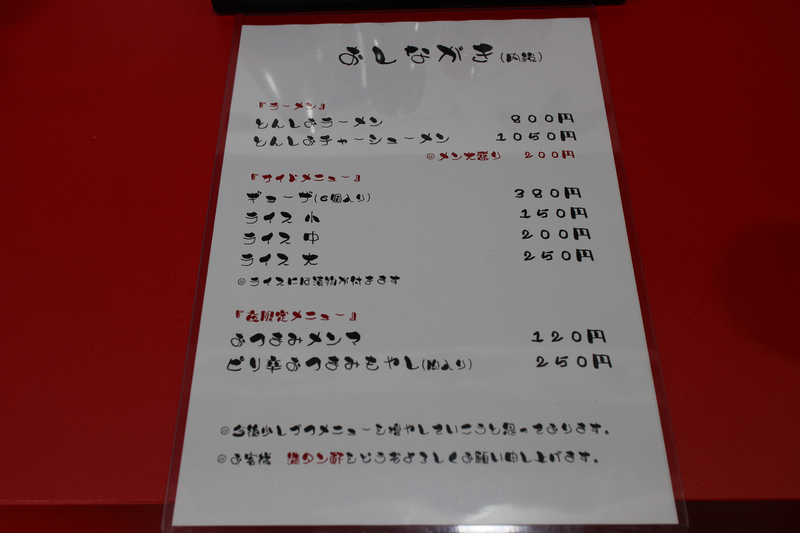 おしながき
『ラーメン』
とんしおラーメン 800円
とんしおチャーシューメン 1050円
◎メン大盛り 200円
『サイドメニュー』
ギョーザ(6個入り) 380円
ライス 小 150円
ライス 中 200円
ライス 大 250円
◎ライスには漬物が付きます
『夜限定メニュー』
おつまみメンマ 120円
ピリ辛おつまみもやし(肉入り) 250円
◎今後少しづつメニューを増やしていこうと思っております。
◎お客様 をどうぞよろしくお願い申し上げます。